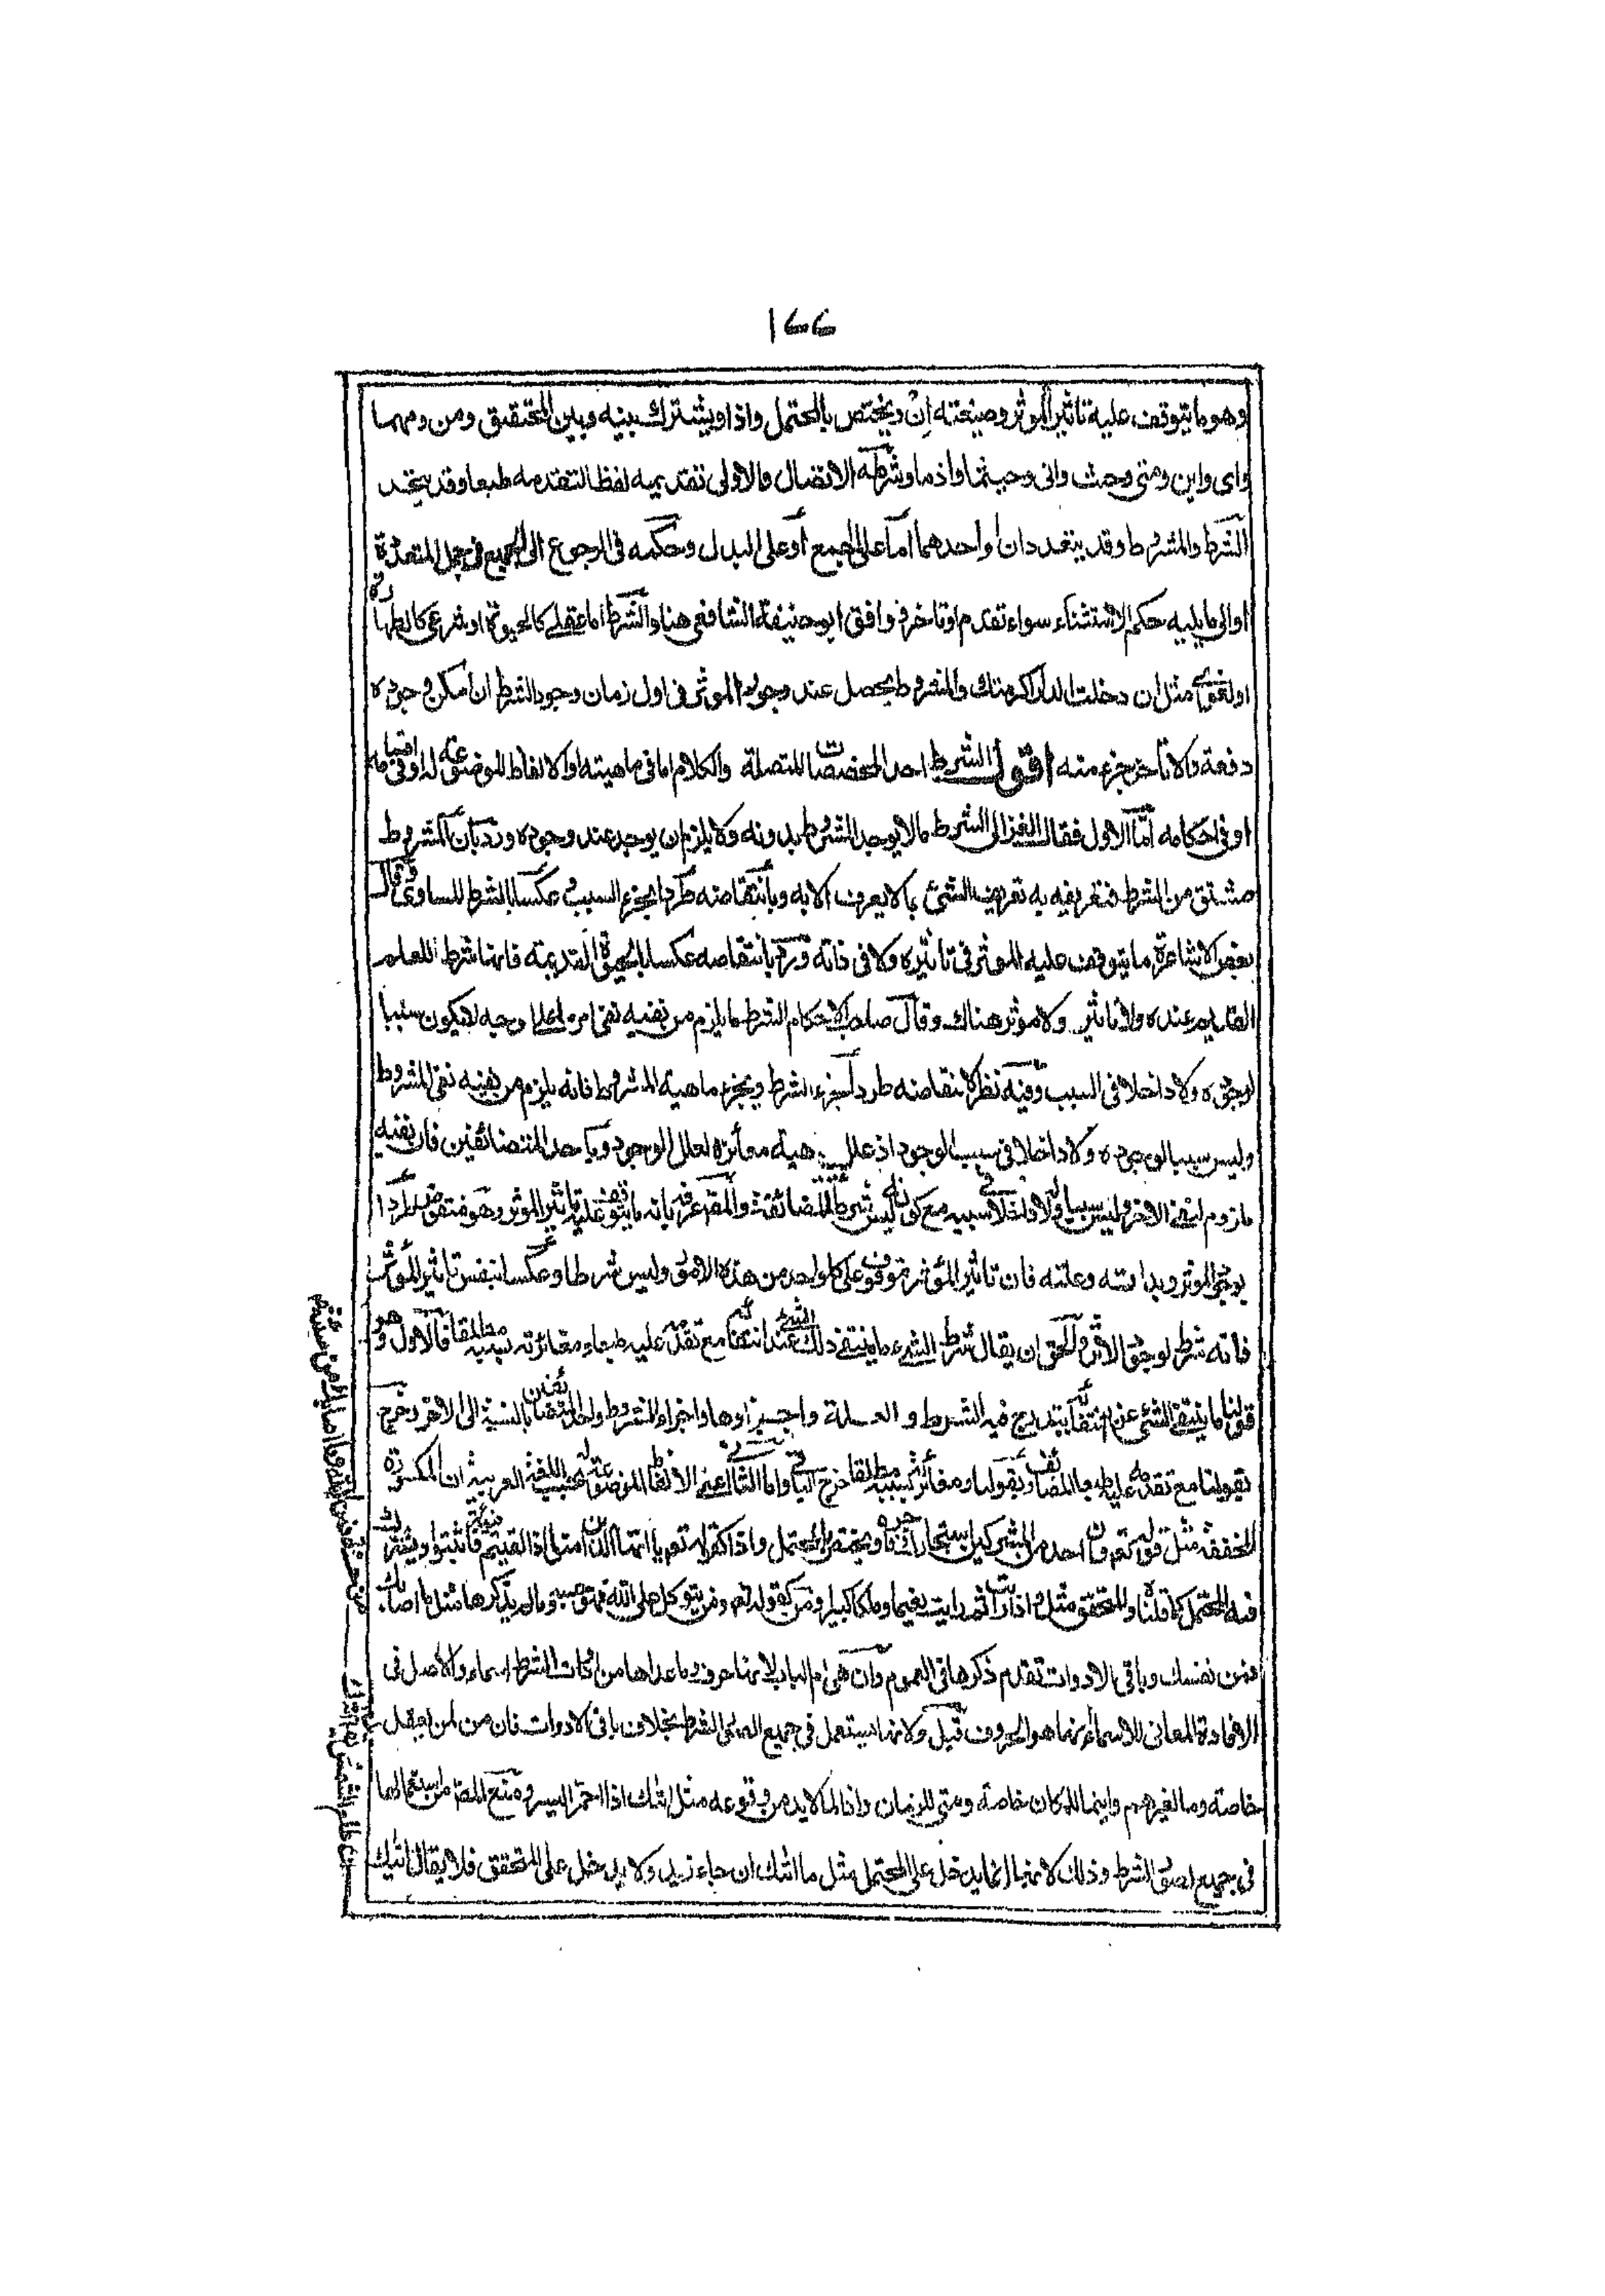 ١٦٦
وهو ما يتوقف عليه تاثير الموثر وصيغته اِنْ ويختص بالمحتمل واذا ويشترك بينه وبين المتحقق ومن ومهما
واى واين ومتى وحيث وانى وحيثما واذما وشرطه الاتصال والاولى تقديمه لفظا لتقدمه طبعا وقد يتحد
الشرط والمشروط وقد يتعددان او احدهما اما على الجمع او على البدل وحكمه فى الرجوع الى الجميع فى الجمل المتعددة
او الى ما يليه حكم الاستثناء سواء تقدم او تاخر ووافق ابو حنيفة الشافعى هنا والشرط اما عقلى كالحيوة او شرعى كالطهارة
او لغوى مثل ان دخلت الدار اكرمتك والمشروط يحصل عند وجود الموثر فى اول زمان وجود الشرط ان امكن وجوده
دفعة والا تاخر جزء منه اقول الشرط احد المخصصات المتصلة والكلام اما فى ماهيته او الالفاظ الموضوعة له او فى اقسامه
او فى احكامه امّا الاول فقال الغزالى الشرط ما لا يوجد المشروط بدونه ولا يلزم ان يوجد عند وجوده ورد بان المشروط
مشتق من الشرط فتعريفه به تعريف الشئ بما لا يعرف الا به وبانتقاضه طردا بجزء السبب وعكسا بالشرط المساوى وقال
بعض الاشاعرة ما يتوقف عليه الموثر فى تاثيره ولا فى ذاته ورد بانتقاضه عكسا بالحيوة القديمة فانها شرط للعلم
القديم عنده ولا تاثير ولا موثر هناك وقال صاحب الاحكام الشرط ما يلزم من نفيه نفى امر ما على وجه لا يكون سببا
لوجوده ولا داخلا فى السبب وفيه نظر لانتقاضه طردا بجزء الشرط وبجزء ماهية المشروط فانه يلزم من نفيه نفى المشروط
وليس سببا لوجوده ولا داخلا فى سبب الوجود اذ علل هية مغائرة لعلل الوجود وباحد المتضائفين فان نفيه
ملزوم لنفى الاخر وليس سببا له ولا داخلا فى سببه مع كونه ليس شرطا للمضائفة والمصنف عرفه بانه ما يتوقف عليه تاثير الموثر وهو منتقض طردا
بوجود الموثر وبذاته وعلته فان تاثير المؤثر متوقف على كل واحد من هذه الامور وليس شرطا وعكسا بنفس تاثير المؤثر
فانه شرط لوجود الاثر والحق ان يقال شرط الشىء ما ينتفى ذلك الشئ عند انتفائه مع تقدمه عليه طبعا ومغائرته لسببه مطلقا فالاول وهو
قولنا ما ينتفى الشئ عند انتفائه يندرج فيه الشرط والعلة واجزاوها واجزاء المشروط واحد المتضائفين بالنسبة الى الاخر وخرج
بقولنا مع تقدمه عليه طبعا المضائف وبقولنا ومغائرته لسببه مطلقا خرج الباقى واما الثانى اعنى الالفاظ الموضوعة له بحسب اللغة العربية ان المكسورة
المخففة مثل قوله تعم وان احد من المشركين استجارك فاجره ويختص بالمحتمل واذا كقوله تعم يا ايها الذين امنوا اذا لقيتم فئة فاثبتوا ويشترك
فيه المحتمل كما قلنا والمتحقق مثل واذا رايت ثم رايت نعيما وملكا كبيرا ومن كقوله تعم ومن يتوكل على الله فهو حسبه وما لم يذكرها مثل ما اصابك
فمن نفسك وباقى الادوات تقدم ذكرها فى العموم وان هى ام الباب لانها حرف وما عداها من ادوات الشرط اسماء والاصل فى
الافادة للمعانى للاسماء انما هو الحروف قيل ولانها تستعمل فى جميع الشرط بخلاف باقى الادوات فان من لمن يعقل
خاصة وما لغيرهم واينما للمكان خاصة ومتى للزمان واذا لما لا بد من وقوعه مثل اتيك اذا احمر البسر ومنع المصنف من استعمالها
فى جميع صور الشرط وذلك لانها انما يدخل على المحتمل مثل ما اتيك ان جاء زيد ولا يدخل على المتحقق فلا يقال اتيك